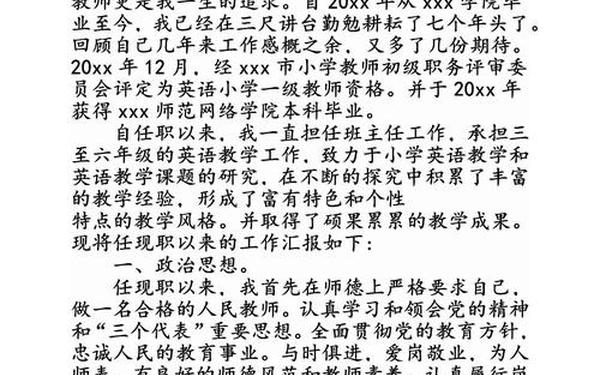 教师更是我一生的追求。自 20xx 年从 xxx 学院毕
业至今，我已经在三尺讲台勤勉耕耘了七个年头了。
回顾自己几年来工作感概之余，又多了几份期待。
20xx 年 12 月，经 xxx 市小学教师初级职务评审委
员会评定为英语小学一级教师资格。并于 20xx 年
获得 xxx 师范网络学院本科毕业。
自任职以来，我一直担任班主任工作，承担三
至六年级的英语教学工作，致力于小学英语教学和
英语教学课题的研究，在不断的探究中积累了丰富
的教学经验，形成了富有特色和个性
特点的教学风格。并取得了硕果累累的教学成果。
现将任现职以来的工作汇报如下：
一、政治思想。
任现职以来，我首先在师德上严格要求自己，
做一名合格的人民教师。认真学习和领会党的精神
和“三个代表”重要思想。全面贯彻党的教育方针，
忠诚人民的教育事业。与时俱进，爱岗敬业，为人
师表，有良好的师德风范和教师素养。认真履行岗